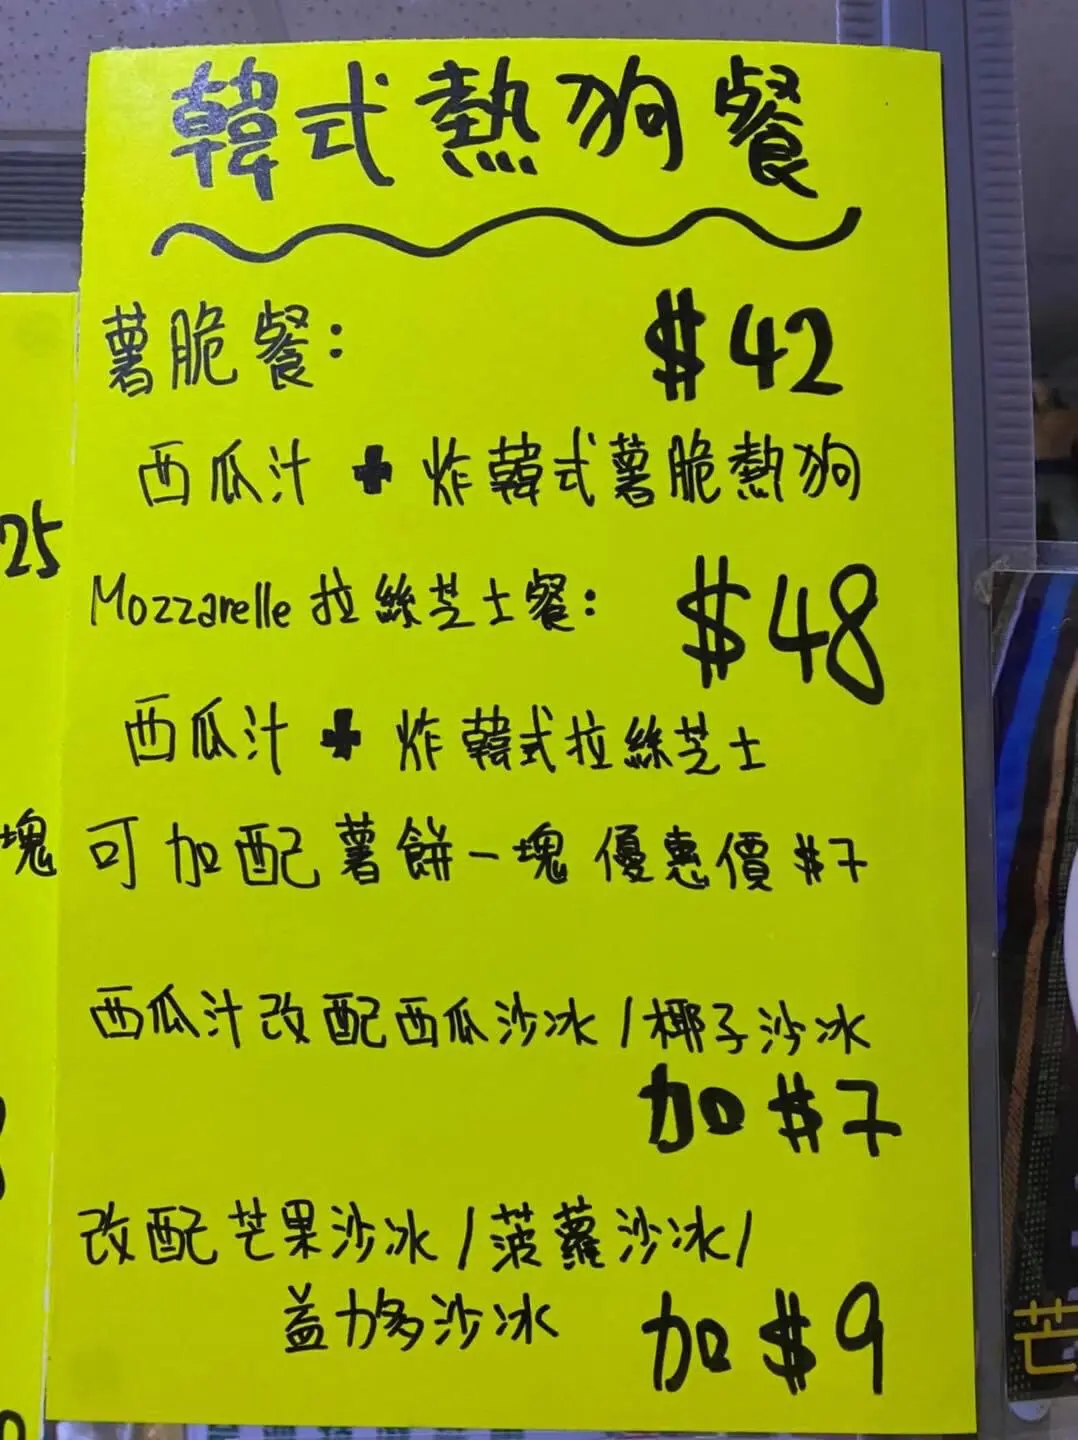 韓式熱狗餐
薯脆餐： $42
西瓜汁 + 炸韓式薯脆熱狗
Mozzarelle 拉絲芝士餐： $48
西瓜汁 + 炸韓式拉絲芝士
可加配薯餅一塊 優惠價 $7
西瓜汁改配西瓜沙冰 / 椰子沙冰
加 $7
改配芒果沙冰 / 菠蘿沙冰 /
益力多沙冰 加 $9
25
塊
芒